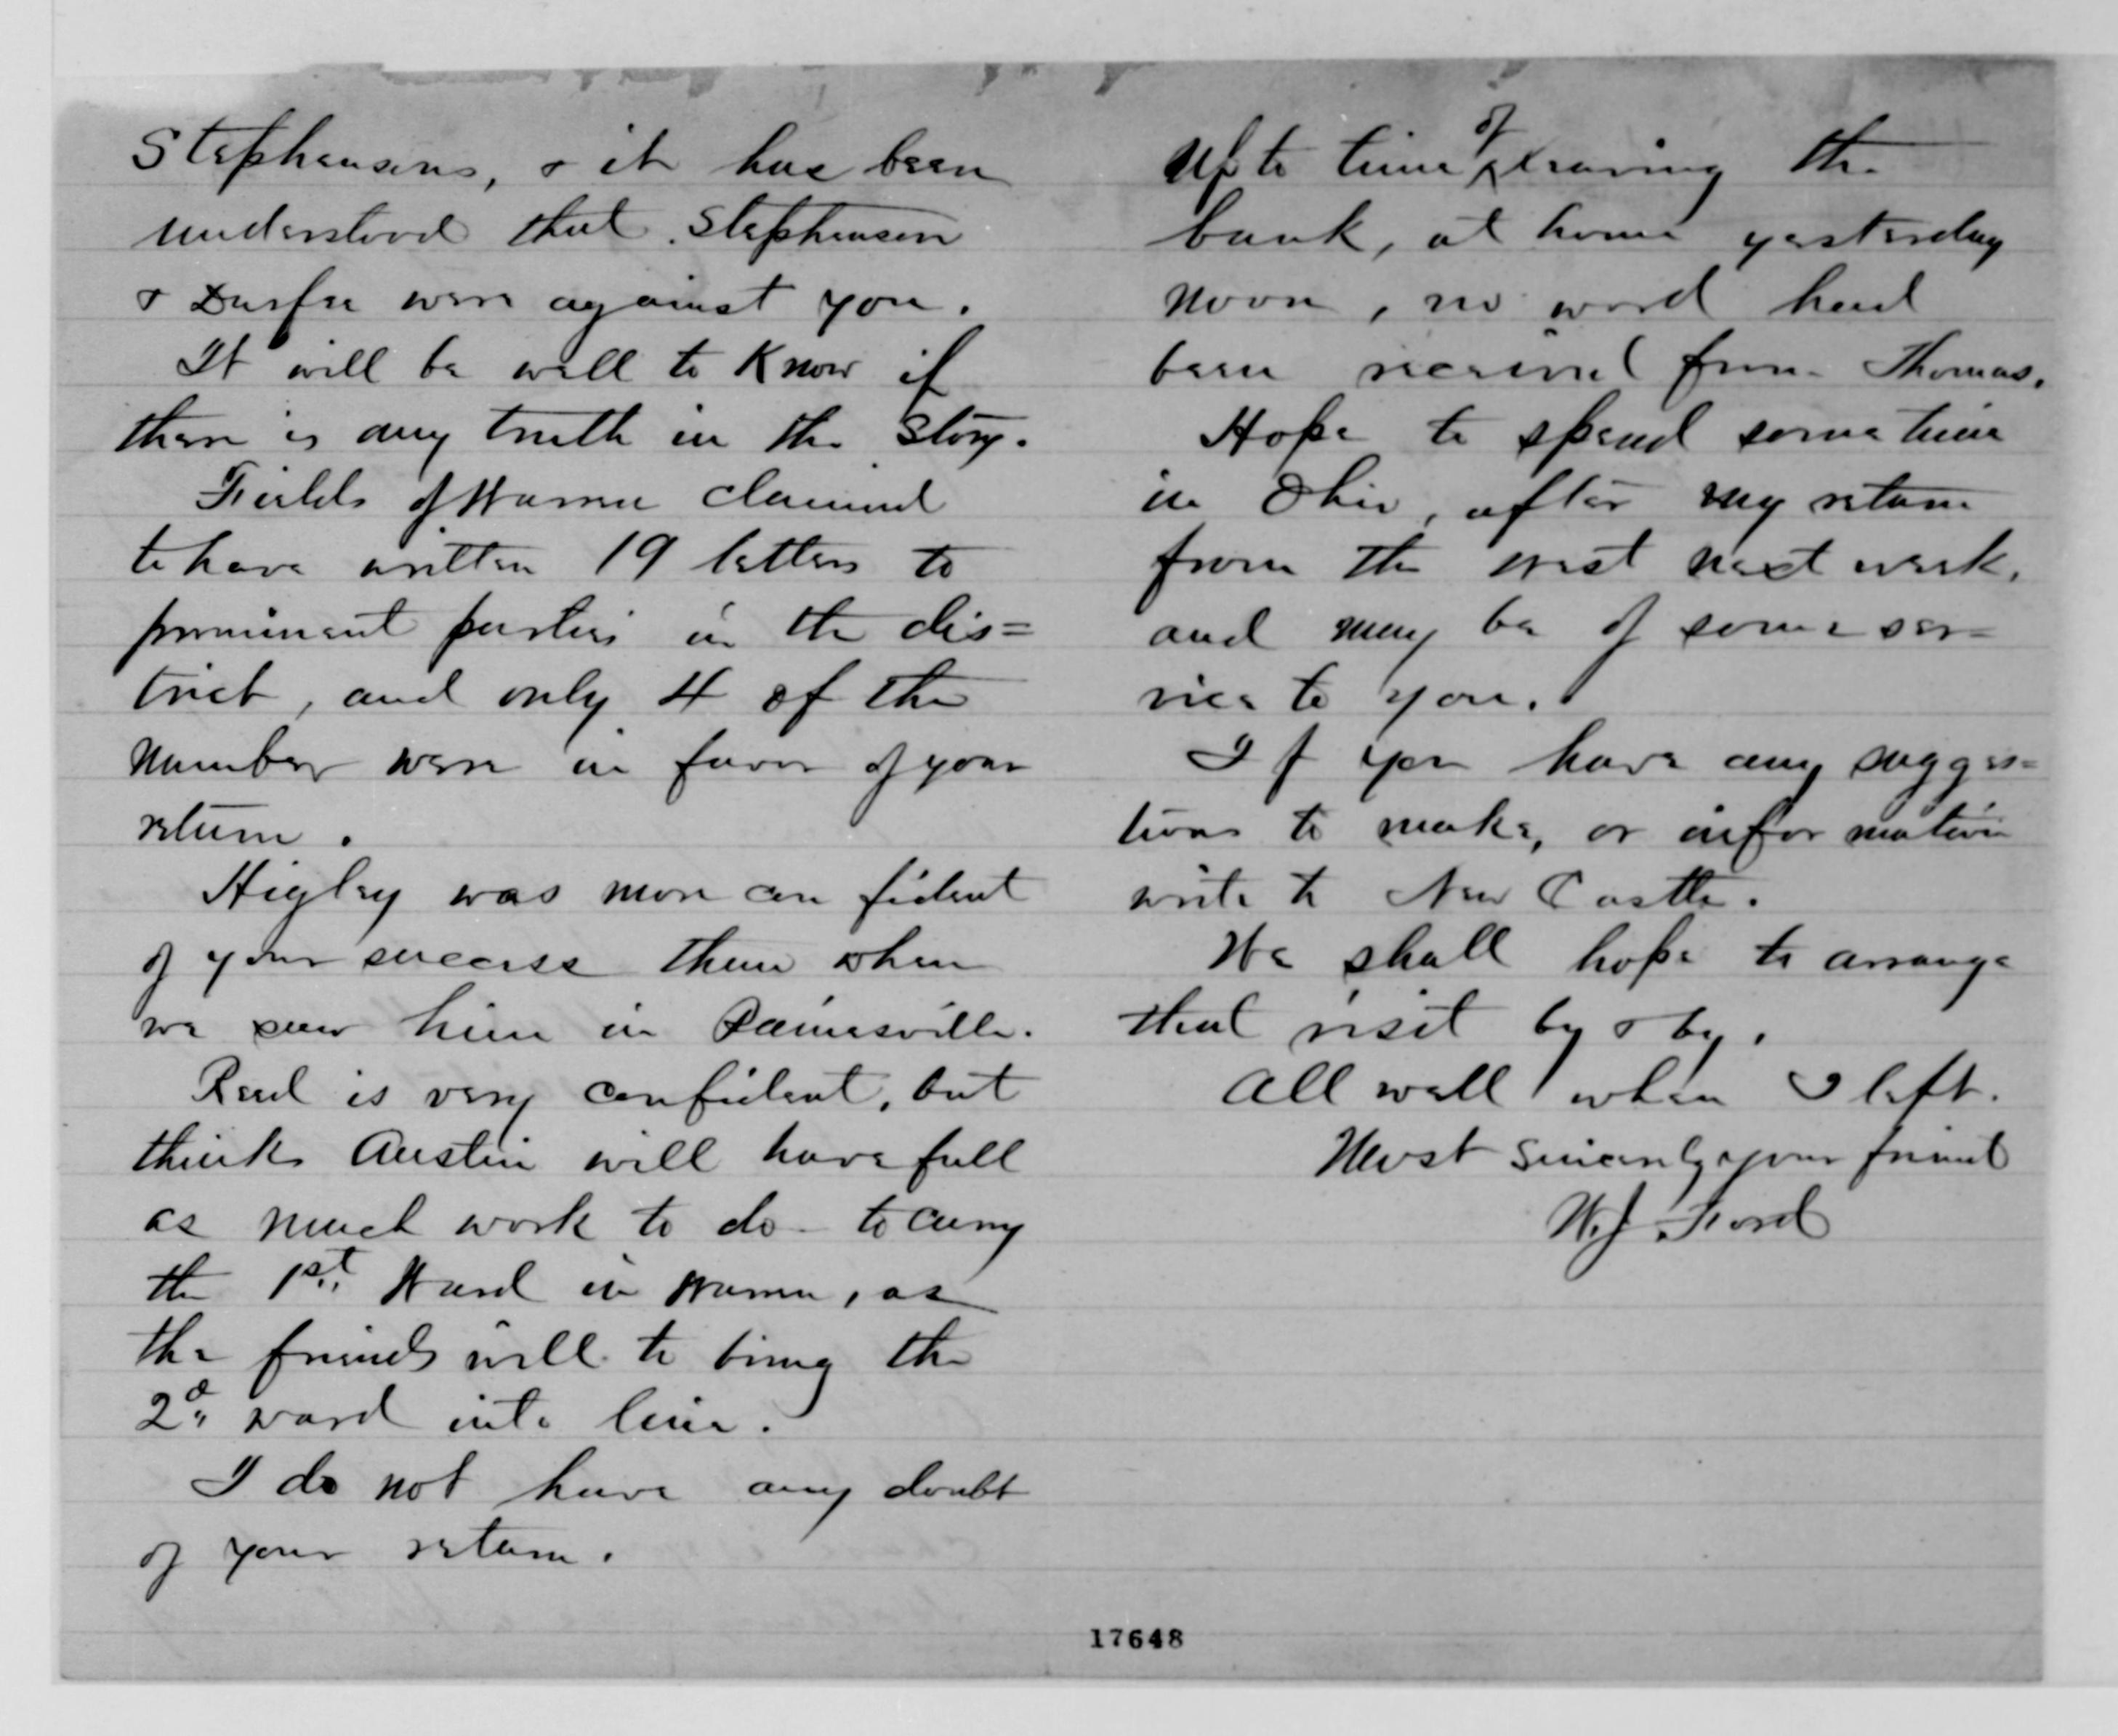 Stephensons, & it has been
understood that Stephenson
& Durfee were against you.
It will be well to know if
there is any truth in the story.
Fields of Warren claimed
to have written 19 letters to
prominent parties in the dis=
trict, and only 4 of the
number were in favor of your
return.
Higley was more confident
of your success then when
we saw him in Painesville.
Reed is very confident, but
thinks Austin will have full
as much work to do to carry
the 1st Ward in Warren, as
the friends will to bring the
2d ward into line.
I do not have any doubt
of your return.
Up to time of leaving the
bank, at home yesterday
noon, no word had
been received from Thomas.
Hope to spend some time
in Ohio, after my return
from the west next week,
and may be of some ser=
vice to you.
If you have any sugges=
tions to make, or information
write to New Castle.
We shall hope to arrange
that visit by & by.
All well when I left.
Most sincerely your friend
W.J. Ford
17648